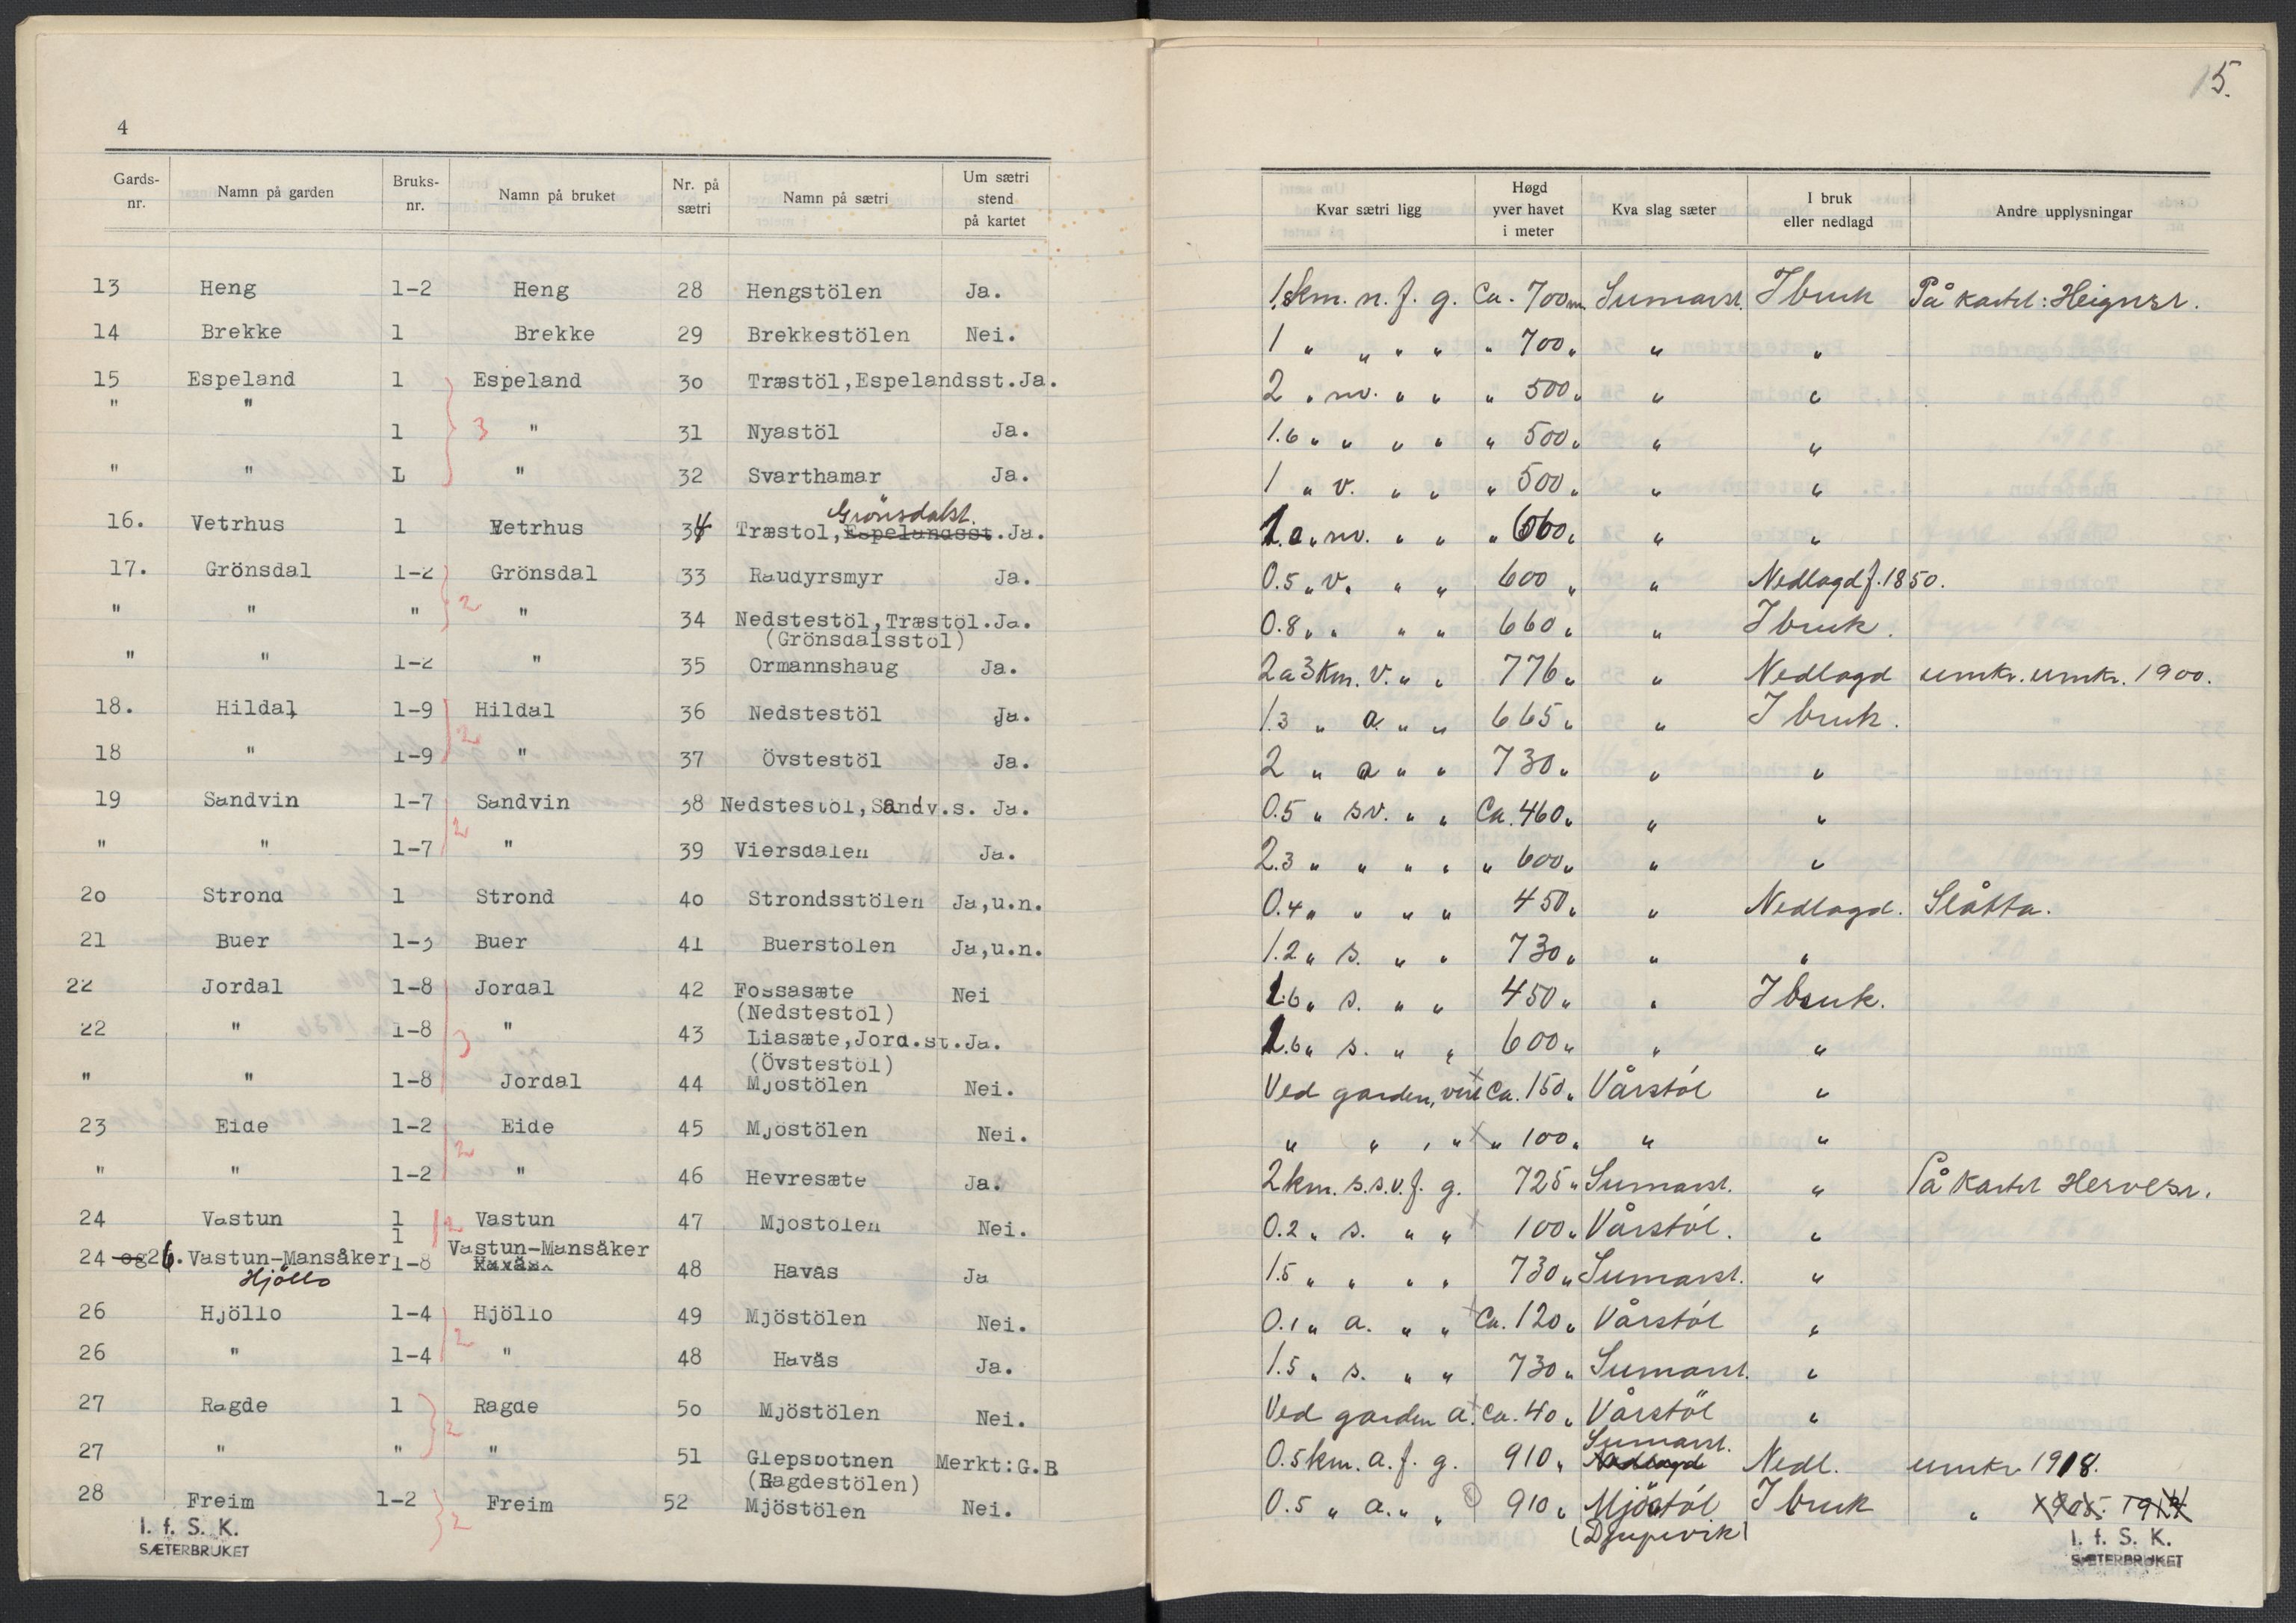 4
Gards-nr. Namn på garden Bruks-nr. Namn på bruket Nr. på sætri Namn på sætri Um sætri stend på kartet
13 Heng 1-2 Heng 28 Hengstölen Ja.
14 Brekke 1 Brekke 29 Brekkestölen Nei.
15 Espeland 1 Espeland 30 Træstöl, Espelandsst. Ja.
" "
1 3 " 31 Nyastöl Ja.
" " L " 32 Svarthamar Ja.
Grönsdalst.
16. Vetrhus 1 Vetrhus 34 Træstol, Espelandsst. Ja.
17. Grönsdal 1-2 Grönsdal 33 Raudyrsmyr Ja.
" " " 2 " 34 Nedstestöl, Træstöl. Ja.
(Grönsdalsstöl)
" " 1-2 " 35 Ormannshaug Ja.
18. Hildal 1-9 Hildal 36 Nedstestöl Ja.
2
18 " 1-9 " 37 Övstestöl Ja.
19 Sandvin 1-7 Sandvin 38 Nedstestöl, Sandv.s. Ja.
2
" " 1-7 " 39 Viersdalen Ja.
20 Strond 1 Strond 40 Strondsstölen Ja, u.n.
21 Buer 1-3 Buer 41 Buerstolen Ja, u.n.
22 Jordal 1-8 Jordal 42 Fossasæte Nei
(Nedstestol)
22 " 1-8 3 " 43 Liasæte, Jord.st. Ja.
(Övstestöl)
" " 1-8 Jordal 44 Mjostölen Nei.
23 Eide 1-2 Eide 45 Mjöstölen Nei.
2
" " 1-2 " 46 Hevresæte Ja.
24 Vastun 1 2 Vastun 47 Mjostolen Nei.
1
24 og 26. Vastun-Mansåker 1-8 Vastun-Mansäker 48 Havås Ja
Hjöllo
26 Hjöllo 1-4 Hjöllo 49 Mjöstölen Nei.
2
26 " 1-4 " 48 Havås Ja.
27 Ragde 1 Ragde 50 Mjöstölen Nei.
2
27 " " " 51 Glepsbotnen Merkt: G.B
(Ragdestölen)
28 Freim 1-2 Freim 52 Mjöstölen Nei.
2
I. f. S. K.
SÆTERBRUKET
15.
Kvar sætri ligg Høgd yver havet i meter Kva slag sæter I bruk eller nedlagd Andre upplysningar
1.8km. n. f. g. Ca. 700m Sumarst. I bruk På kartet: Heignsr.
1 " " " " " 700 " " "
2 " nv. " " " 500 " " "
1.6 " " " " " 500 " " "
1 " v. " " " 500 " " "
1.0 " nv. " " " 660 " " "
0.5 " v. " " 600 " " Nedlagd f. 1850.
0.8 " " " " 660 " " I bruk.
2 a 3 km. v. " " 776 " " Nedlagd umkr. umkr. 1900.
1.3 " a " " 665 " " I bruk.
2 " a " " 730 " " "
0.5 " sv. " " Ca. 460 " " "
2.3 " " " " " 600 " " "
0.4 " " " " 450 " " Nedlagd. Slåtta.
1.2 " s. " " 730 " " "
1.6 " s. " " 450 " " I bruk.
1.6 " s. " " 600 " " "
Ved garden, Ca. 150 " Vårstöl "
" " , " " 100 " " "
2 km. s.s.v. f. g. 725 " Sumarst. " På kartet Hervesr.
0.2 " s. " " 100 " Vårstöl. "
1.5 " " " " 730 " Sumarst. "
0.1 " a. " " Ca. 120 " Vårstöl "
1.5 " s. " " 730 " Sumarst. "
Ved garden a. Ca. 40 " Vårstöl "
Sumarst.
0.5 km. a. f. g. 910 " Nedlagd Nedl. umkr 1918.
0.5 " a. " " 910 " Mjöstöl I bruk "
(Djupevik)
I. f. S. K.
SÆTERBRUKET